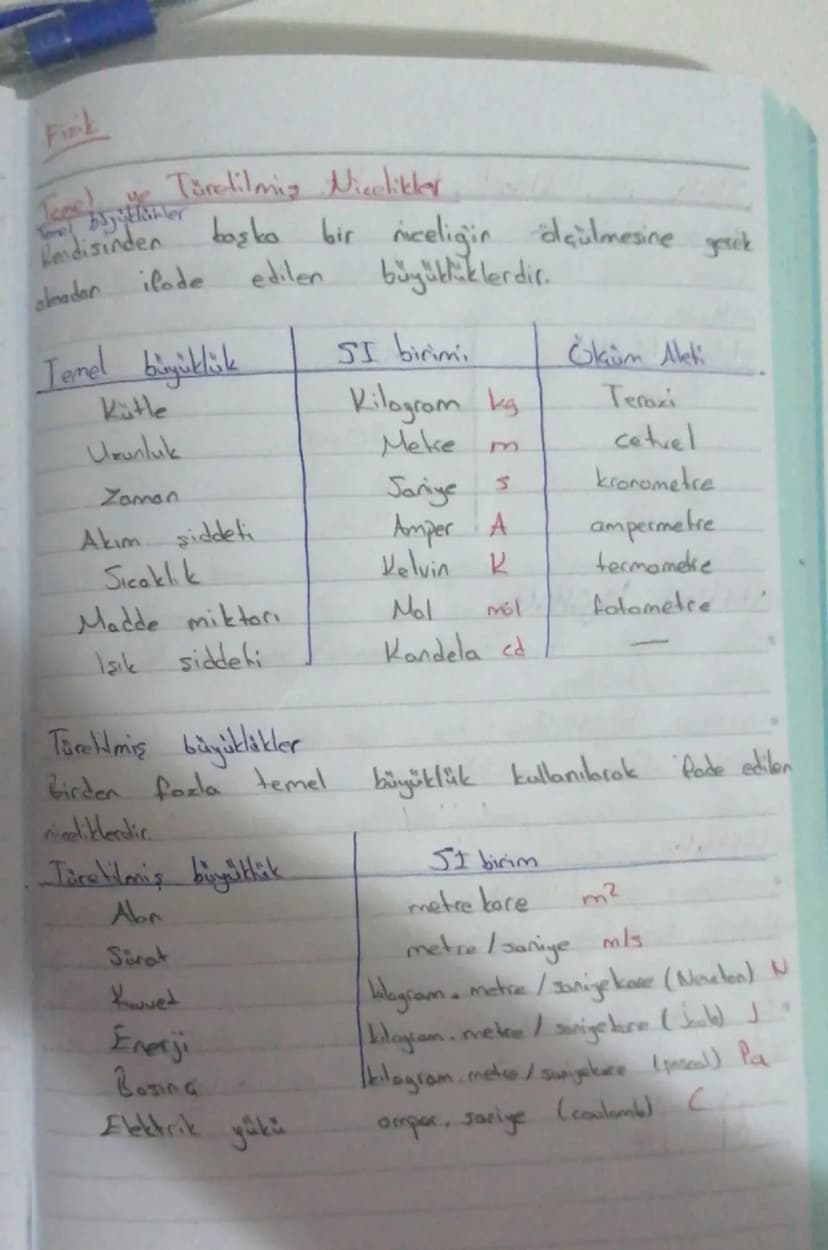 Fizik
Temel ve Türetilmiş Nicelikler
Temel büyüklükler
Kendisinden başka bir niceliğin ölçülmesine gerek
olmadan ifade edilen büyüklüklerdir.
Temel büyüklük SI birimi Ölçüm Aleti
Kütle Kilogram kg Terazi
Uzunluk Metre m cetvel
Zaman Saniye s kronometre
Akım şiddeti Amper A ampermetre
Sıcaklık Kelvin K termometre
Madde miktarı Mol mol fotometre
Işık şiddeti Kandela cd —
Türetilmiş büyüklükler
Birden fazla temel büyüklük kullanılarak ifade edilen
niceliklerdir.
Türetilmiş büyüklük SI birim
Alan metre kare m²
Sürat metre / saniye m/s
Kuvvet kilogram. metre / saniyekare (Newton) N
Enerji kilogram. metre / saniyekare (Joule) J
Basınç kilogram. metre / saniyekare (pascal) Pa
Elektrik yükü amper. saniye (coulomb) C